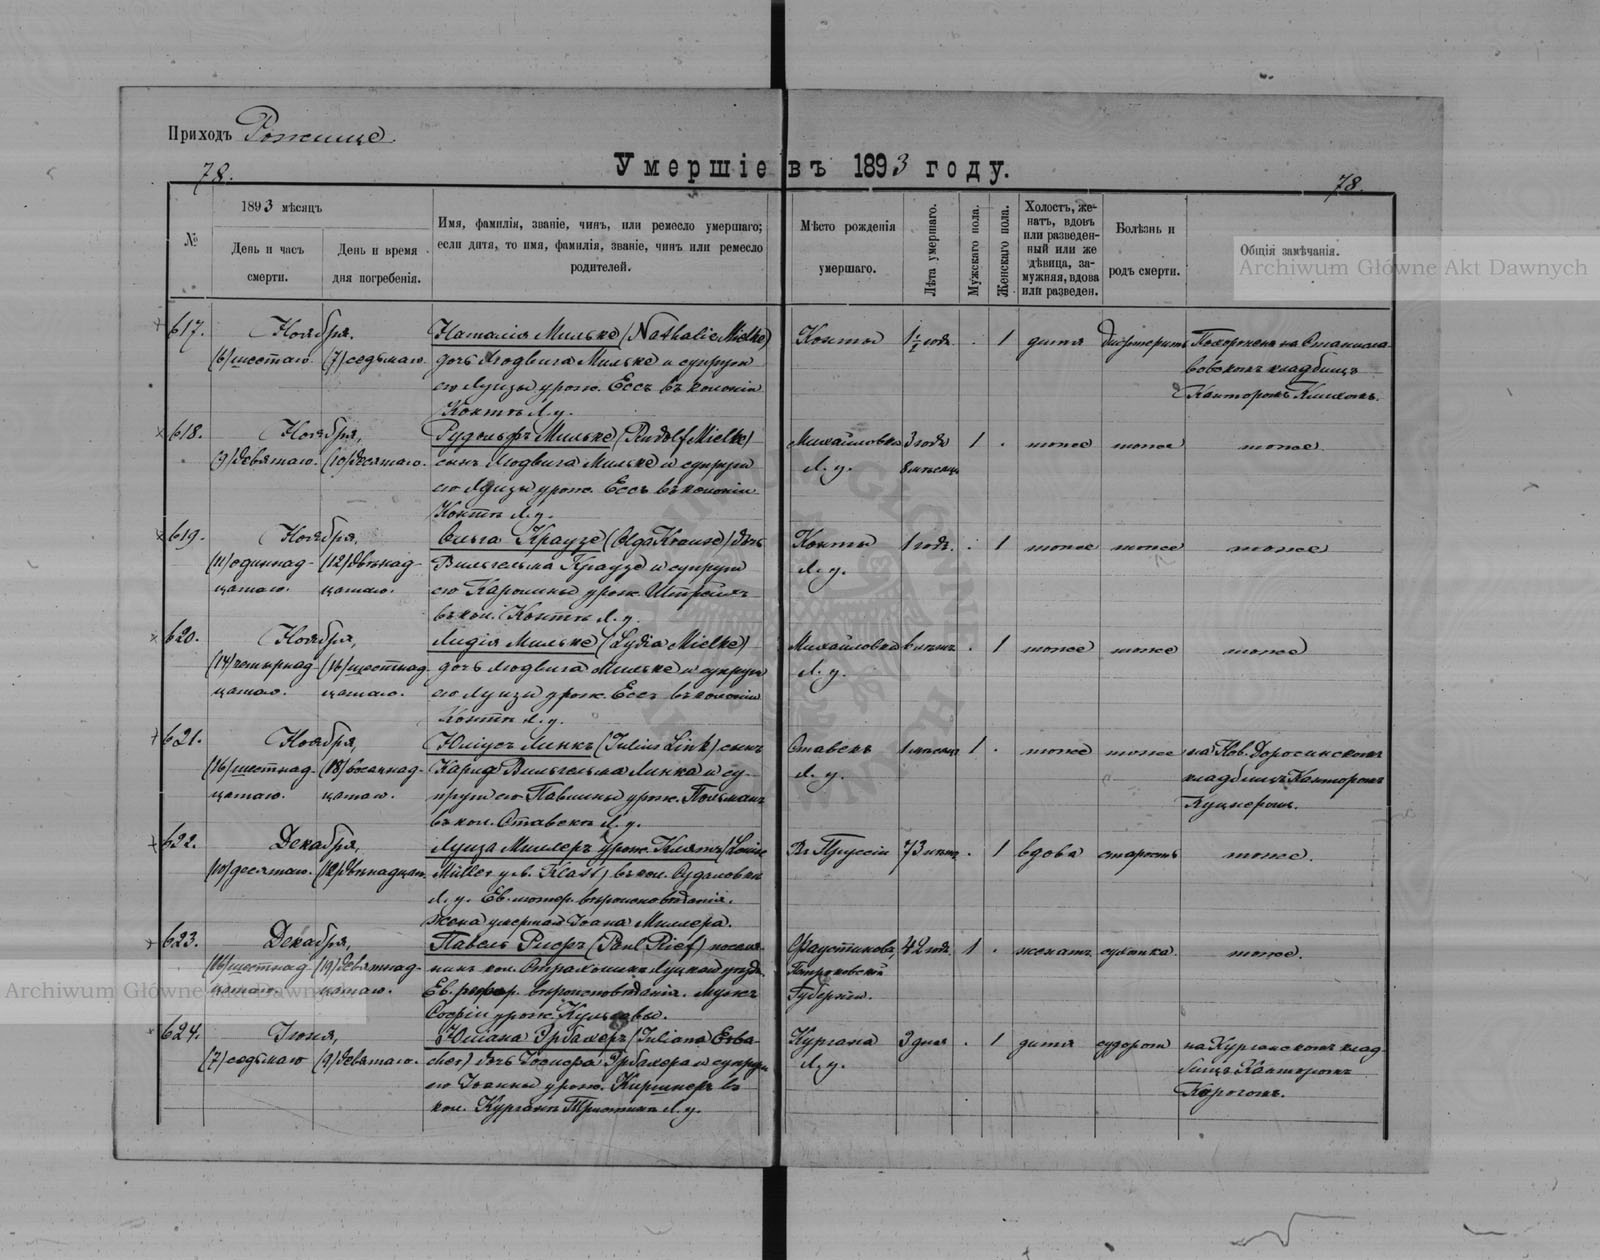 Приходъ Рожище
Умершіе въ 1893 году.
78.
78.
1893 мѣсяцъ
№
День и часъ смерти.
День и время дня погребенія.
Имя, фамилія, званіе, чинъ, или ремесло умершаго;
если дитя, то имя, фамилія, званіе, чинъ или ремесло
родителей.
Мѣсто рожденія
умершаго.
Лѣта умершаго.
Мужскаго пола.
Женскаго пола.
Холостъ, же-
натъ, вдовъ
или разведен-
ный или же
дѣвица, за-
мужняя, вдова
или разведен.
Болѣзнь и
родъ смерти.
Общія замѣчанія.
Archiwum Główne Akt Dawnych
617. Ноября.
(6) шестаго. (7) седьмаго.
Наталія Мильке (Nathalie Mielke)
дочь Людвига Мильке и супруги
его Луизы урож. Ессъ въ колоніи
Контъ Л. у.
Конты 1½ года . 1 дитя дифтеритъ
Похороненъ на Станисла-
вовскомъ кладбищѣ
Канторомъ
618. Ноября,
(9) девятаго. (10) десятаго.
Рудольфъ Мильке (Rudolf Mielke)
сынъ Людвига Мильке и супруги
его Луизы урож. Ессъ въ колоніи
Контъ Л. у.
Михайловка Л. у. 3 года 8 мѣсяц. 1 . тоже тоже тоже
619. Ноября,
(11) одиннад-
цатаго.
(12) двѣнад-
цатаго.
Ольга Краузе (Olga Krause) дочь
Вильгельма Краузе и супруги
его Каролины урож. Штрейхъ
въ кол. Контъ Л. у.
Конты Л. у. 1 годъ. . 1 тоже тоже тоже
620. Ноября,
(14) четырнад-
цатаго.
(16) шестнад-
цатаго.
Лидія Мильке (Lydia Mielke)
дочь Людвига Мильке и супруги
его Луизы урож. Ессъ въ колоніи
Контъ Л. у.
Михайловка Л. у. 6 лѣтъ . 1 тоже тоже тоже
621. Ноября,
(16) шестнад-
цатаго.
(18) восемнад-
цатаго.
Юліусъ Линкъ (Julius Link) сынъ
Карла Вильгельма Линка и су-
пруги его Павлины урож. Польманъ
въ кол. Ставекъ Л. у.
Ставекъ Л. у. 1 мѣсяцъ 1 . тоже тоже
на Нов. Доросинскомъ
кладбищѣ Канторомъ
622. Декабря,
(10) десятаго. (12) двѣнадцат.
Луиза Миллеръ урож. Клятъ (Louise
Müller geb. Klatt) въ кол.
Л. у. Ев. лютер. вѣроисповѣданія.
жена умершаго Іоана Миллера.
Въ Пруссіи 73 лѣтъ . 1 вдова старость тоже.
623. Декабря,
(16) шестнад-
цатаго.
(19) девятнад-
цатаго.
Павелъ Рифъ (Paul Rief) поселя-
нинъ кол. Страклишки Луцкаго уѣзда
Ев. реформ. вѣроисповѣданія. мужъ
Софіи урож.
Фаустинова,
Петроковской
Губерніи.
42 года. 1 . женатъ сухотка. тоже.
624. Іюня,
(7) седьмаго (9) девятаго.
Юліана Эрбахеръ (Juliana Erba-
cher) дочь Іосифа Эрбахера и супруги
его Іоанны урож. Киршнеръ въ
кол. Курганъ Л. у.
Кургана Л. у. 3 дня . 1 дитя судороги
на Курганскомъ клад-
бищѣ Канторомъ
Archiwum Główne Akt Dawnych